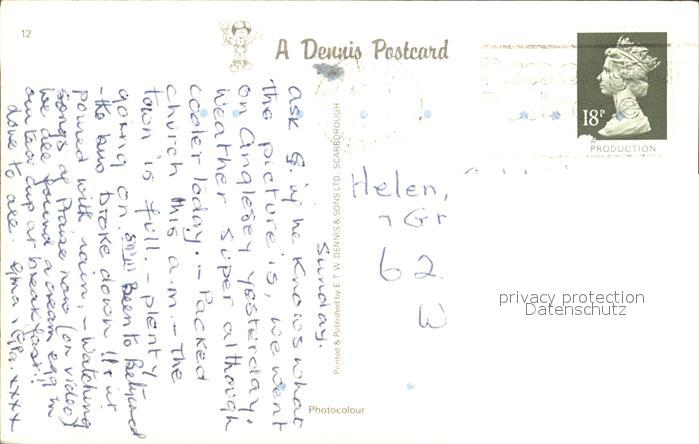 12
A Dennis Postcard
18P
A
PRODUCTION
Sunday.
Ask G. if he knows what
the picture is, we went
on Anglesey yesterday.
Weather super although
cooler today. - Packed
church this a.m. - The
town is full. - plenty
going on. Been to Betws
- the bus broke down !! & it
poured with rain. - Watching
songs of Praise now (on video)
We all found a cream egg in
our tea cup at breakfast!!
Love to all. G'ma & G'Pa xxxx
Printed & Published by E.T.W. DENNIS & SONS LTD. SCARBOROUGH
Photocolour
Helen,
Gr
62
W
privacy protection
Datenschutz